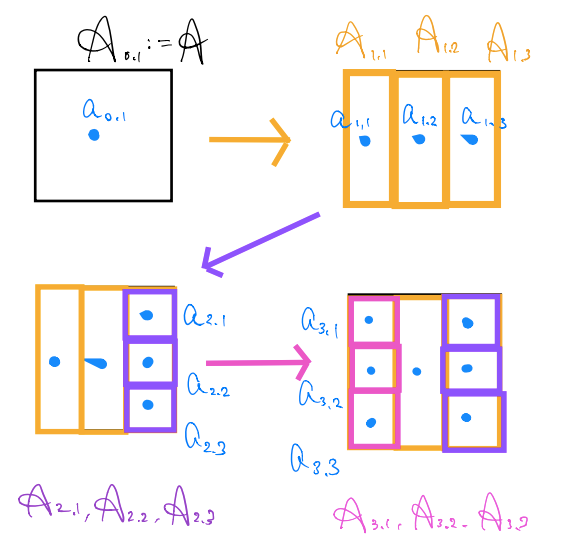 A0.1 := A
A1,1 A1.2 A1.3
a0.1
a1,1 a1.2 a1.3
a2.1
a2.2
a2.3
a3,1
a3.2
a3.3
A2.1, A2.2, A2.3
A3.1, A3.2. A3.3